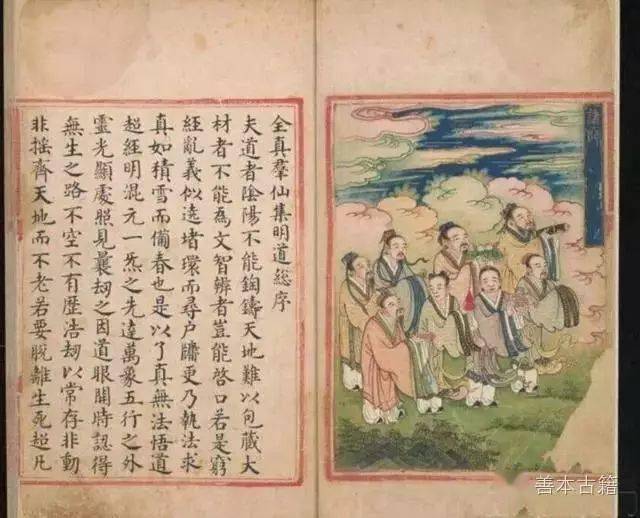 全真羣仙集明道總序
夫道者陰陽不能鎔鑄天地難以包藏大
材者不能為文智辨者豈能啓口若是窮
經亂義似遶堵環而尋户牖更乃執法求
真如積雪而備春也是以了真無法悟道
超經明混元一炁之先達萬象五行之外
靈光顯處照見曩劫之因道眼開時認得
無生之路不空不有歷浩劫以常存非動
非揺齊天地而不老若要脱離生死超凡
善本古籍